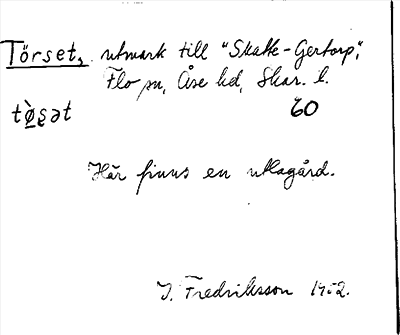 Törset, utmark till "Skatte-Gertorp",
Flo sn, Åse hd, Skar. l.
tø̀ʂət 60
Här finns en utlagård.
J. Fredriksson 1952.